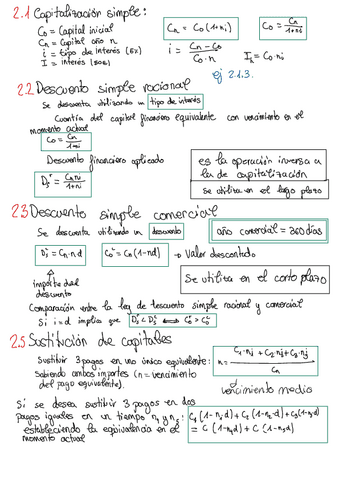 2.1 Capitalización simple:
C₀ = Capital inicial
Cₙ = Capital año n
i = tipo de interés (5%)
I = interés (50€)
Cₙ = C₀(1+ni)
C₀ = Cₙ/1+ni
i = Cₙ - C₀/C₀·n
Iₖ = C₀·ni
ej 2.1.3.
2.2 Descuento simple racional
Se descuenta utilizando un tipo de interés
Cuantía del capital financiero equivalente con vencimiento en el
momento actual
C₀ = Cₙ/1+ni
Descuento financiero aplicado
Dᵣ = Cₙni/1+ni
es la operación inversa a
la de capitalización
Se utiliza en el largo plazo
2.3 Descuento simple comercial
Se descuenta utilizando un descuento
año comercial = 360 días
= Cₙ·n·d
= Cₙ(1-nd)
→ Valor descontado
importe del
descuento
Se utiliza en el corto plazo
Comparación entre la ley de descuento simple racional y comercial
Si i=d implica que
2.5 Sustitución de capitales
Sustituir 3 pagos en uno único equivalente:
Sabiendo ambos importes (n = vencimiento
del pago equivalente).
n = C₁·n₁ + C₂·n₂ + C₃·n₃/Cₙ
vencimiento medio
Si se desea sustituir 3 pagos en dos
pagos iguales en un tiempo n₄ y n₅:
estableciendo la equivalencia en el
momento actual
C₁(1-n₁d) + C₂(1-n₂d) + C₃(1-n₃d)
= C(1-n₄d) + C(1-n₅d)